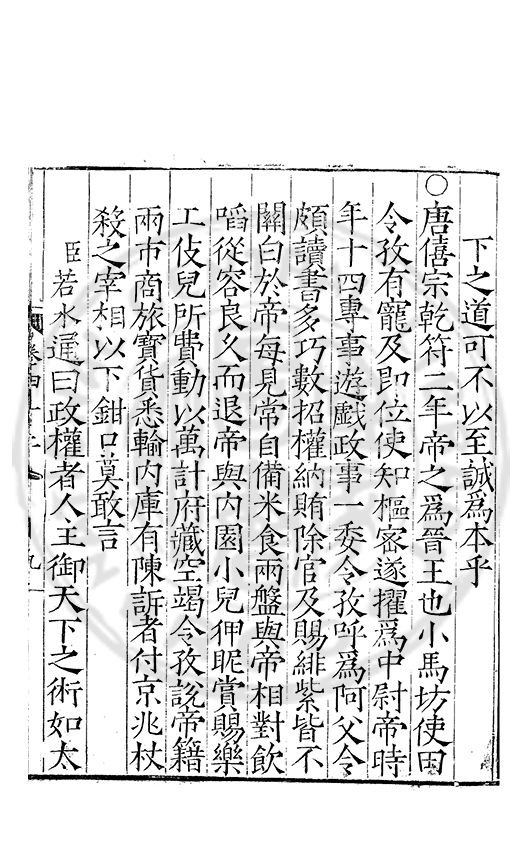 下之道可不以至誠爲本乎
○唐僖宗乾符二年帝之爲晉王也小馬坊使田
令孜有寵及即位使知樞密遂擢爲中尉帝時
年十四專事遊戲政事一委令孜呼爲阿父令
頗讀書多巧數招權納賄除官及賜緋紫皆不
關白於帝每見常自備米食兩盤與帝相對飲
啗從容良久而退帝與內園小兒狎昵賞賜樂
工伎兒所費動以萬計府藏空竭令孜說帝籍
兩市商旅寶貨悉輸內庫有陳訴者付京兆杖
殺之宰相以下鉗口莫敢言
臣若水通曰政權者人主御天下之術如太